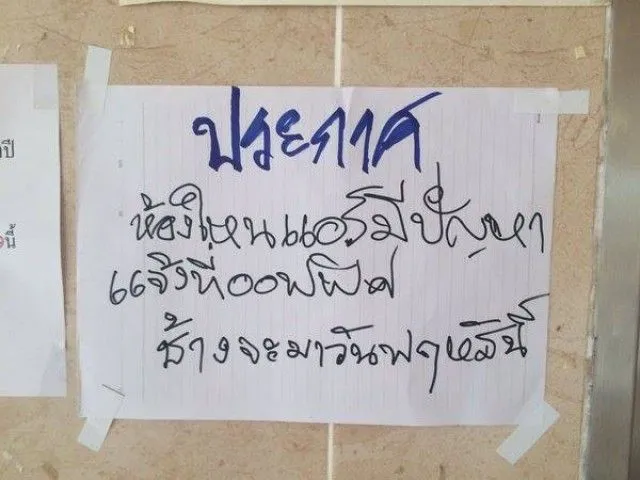 ปี
นี้
ประกาศ
ห้องใหนแอร์มีปัญหา
แจ้งที่ออฟฟิศ
ช้างจะมาวันพฤหัสนี้